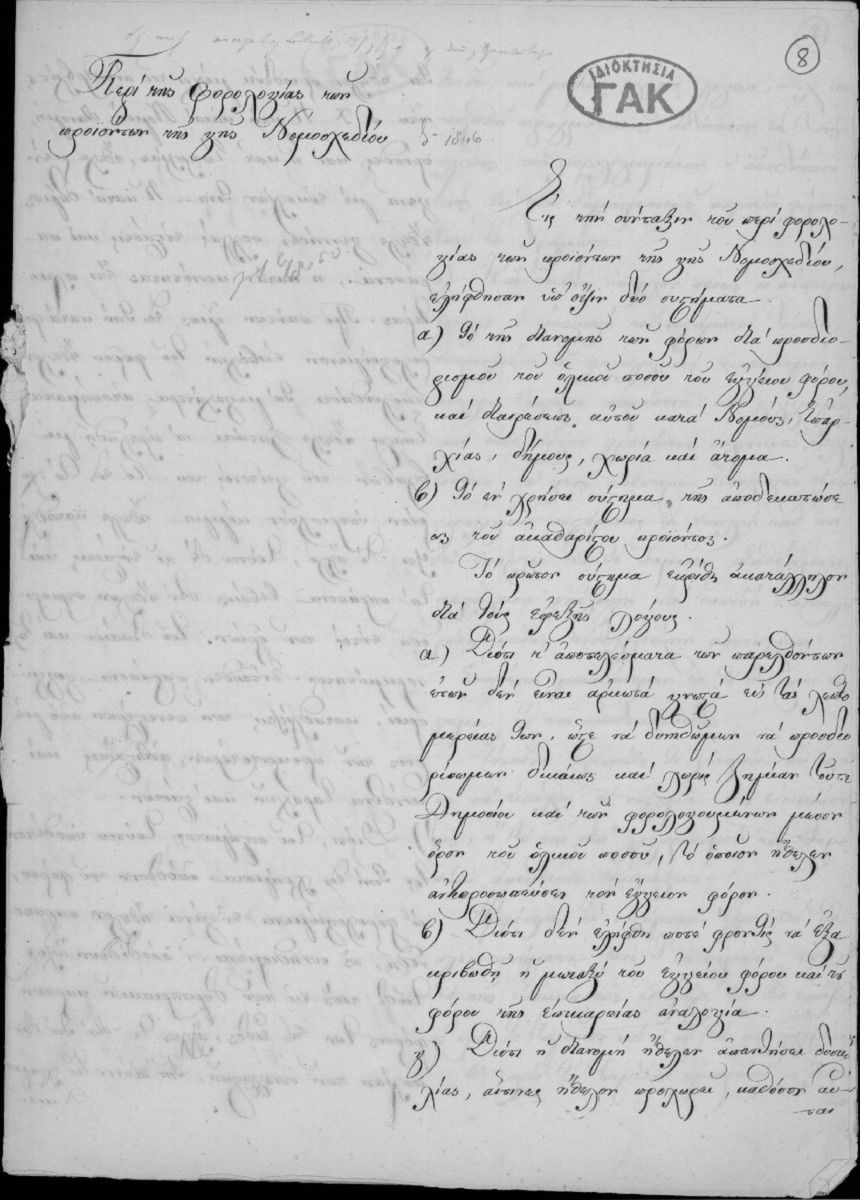 8
ΙΔΙΟΚΤΗΣΙΑ
ΓΑΚ
Περὶ τῆς φορολογίας τῶν
προϊόντων τῆς γῆς Νομοσχεδίου
1846
Εἰς τὴν σύνταξιν τοῦ περὶ φορολο-
γίας τῶν προϊόντων τῆς γῆς Νομοσχεδίου,
ἐλήφθησαν ὑπ' ὄψιν δύο συστήματα.
α) Τὸ τῆς διανομῆς τῶν φόρων διὰ προσδιο-
ρισμοῦ τοῦ ὁλικοῦ ποσοῦ τοῦ ἐγγείου φόρου,
καὶ διαιρέσεως αὐτοῦ κατὰ Νομούς, Ἐπαρ-
χίας, δήμους, χωρία καὶ ἄτομα.
β) Τὸ ἐν χρήσει σύστημα τῆς ἀποδεκατώσε
ως τοῦ ἀκαθαρίστου προϊόντος.
Τὸ πρῶτον σύστημα ἐκρίθη ἀκατάλληλον
διὰ τοὺς ἐφεξῆς λόγους.
α) Διότι τ' ἀποτελέσματα τῶν παρελθόντων
ἐτῶν δὲν εἶναι ἀρκετὰ γνωστὰ εἰς τὰς λεπτο
μερείας των, ὥστε νὰ δυνηθῶμεν νὰ προσδιο
ρίσωμεν δικαίως καὶ χωρὶς ζημίαν τοῦτε
Δημοσίου καὶ τῶν φορολογουμένων μέσον
ὅρον τοῦ ὁλικοῦ ποσοῦ, τὸ ὁποῖον ἤθελεν
ἀντιπροσωπεύσει τὸν ἔγγειον φόρον.
β) Διότι δὲν ἐλήφθη ποτὲ φροντὶς νὰ ἐξα
κριβωθῇ ἡ μεταξὺ τοῦ ἐγγείου φόρου καὶ τοῦ
φόρου τῆς ἐπικαρπίας ἀναλογία.
γ) Διότι ἡ διανομὴ ἤθελεν ἀπαντήσει δυσκο
λίας, αἵτινες ἤθελον προχωρεῖ, καθόσον αὐ-
ται